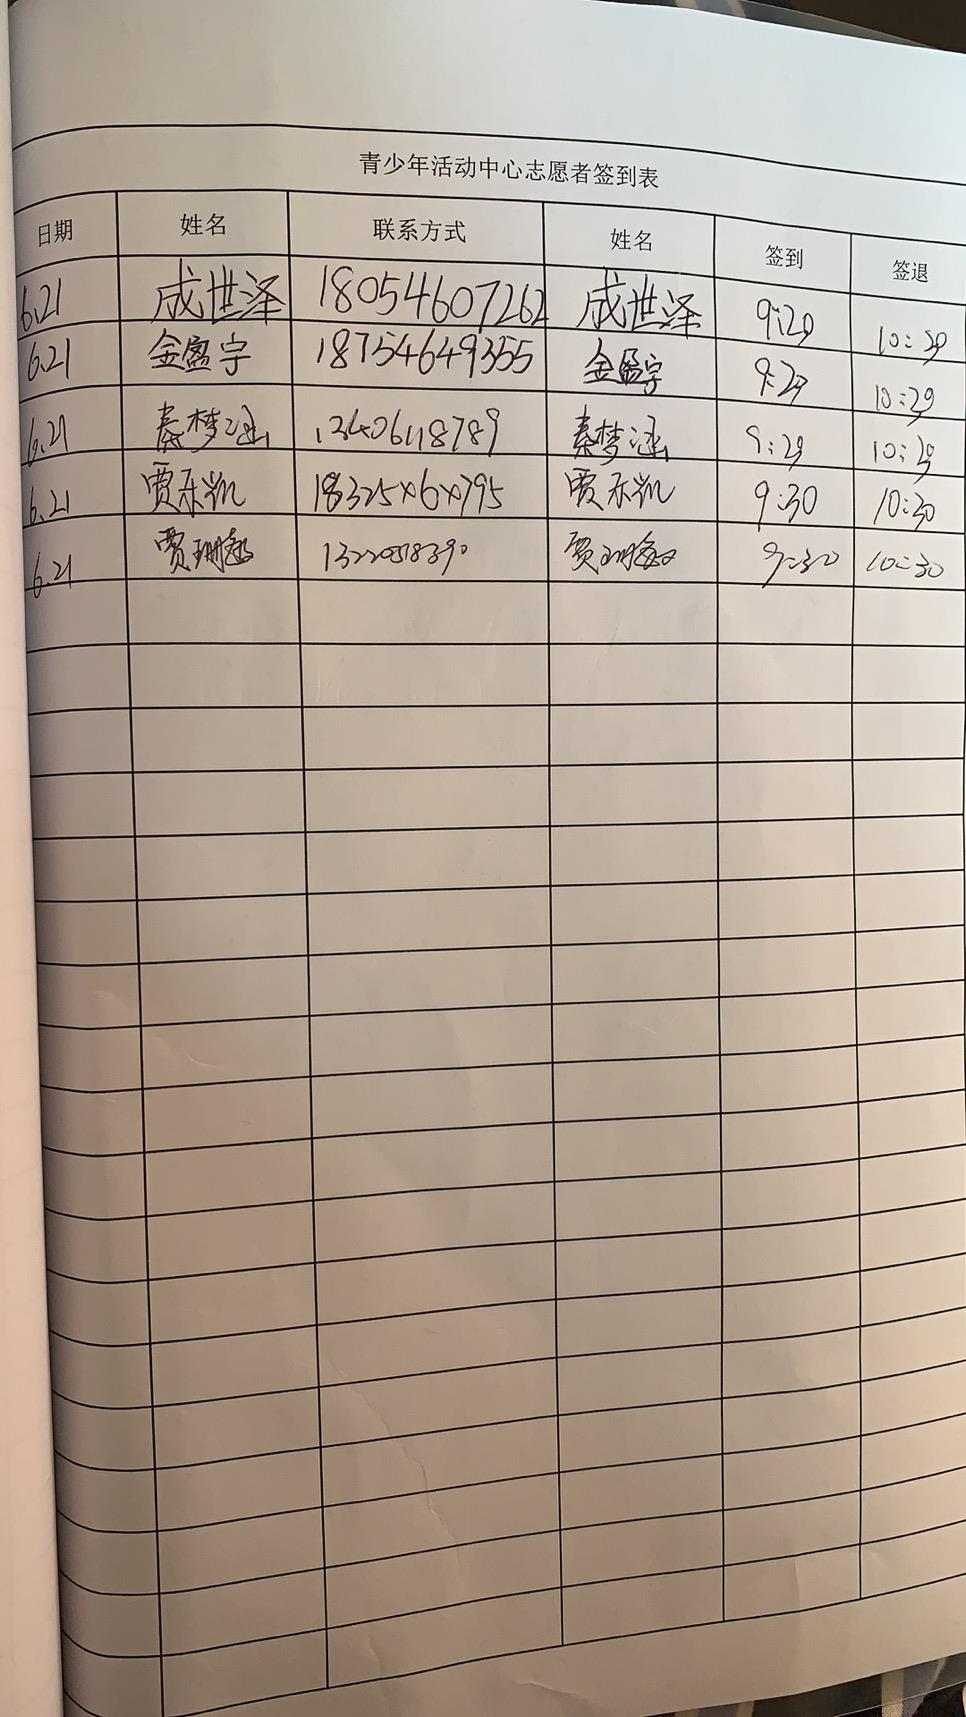 青少年活动中心志愿者签到表
日期 姓名 联系方式 姓名 签到 签退
6.21 成世泽 18054607262 成世泽 9:29 10:29
6.21 金盈宇 18754649355 金盈宇 9:29 10:29
6.21 秦梦涵 秦梦涵 9:29 10:29
6.21 贾东凯 贾东凯 9:30 10:30
6.21 贾珊 贾珊 9:30 10:30